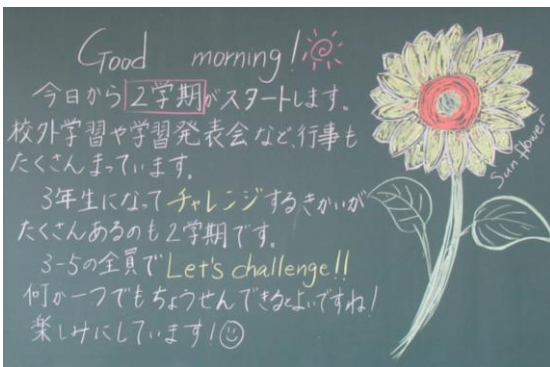 Good morning!
今日から2学期がスタートします。
校外学習や学習発表会など、行事も
たくさんまっています。
3年生になってチャレンジするきかいが
たくさんあるのも2学期です。
3-5の全員でLet's challenge!!
何か一つでもちょうせんできるとよいですね!
楽しみにしています!
Sunflower